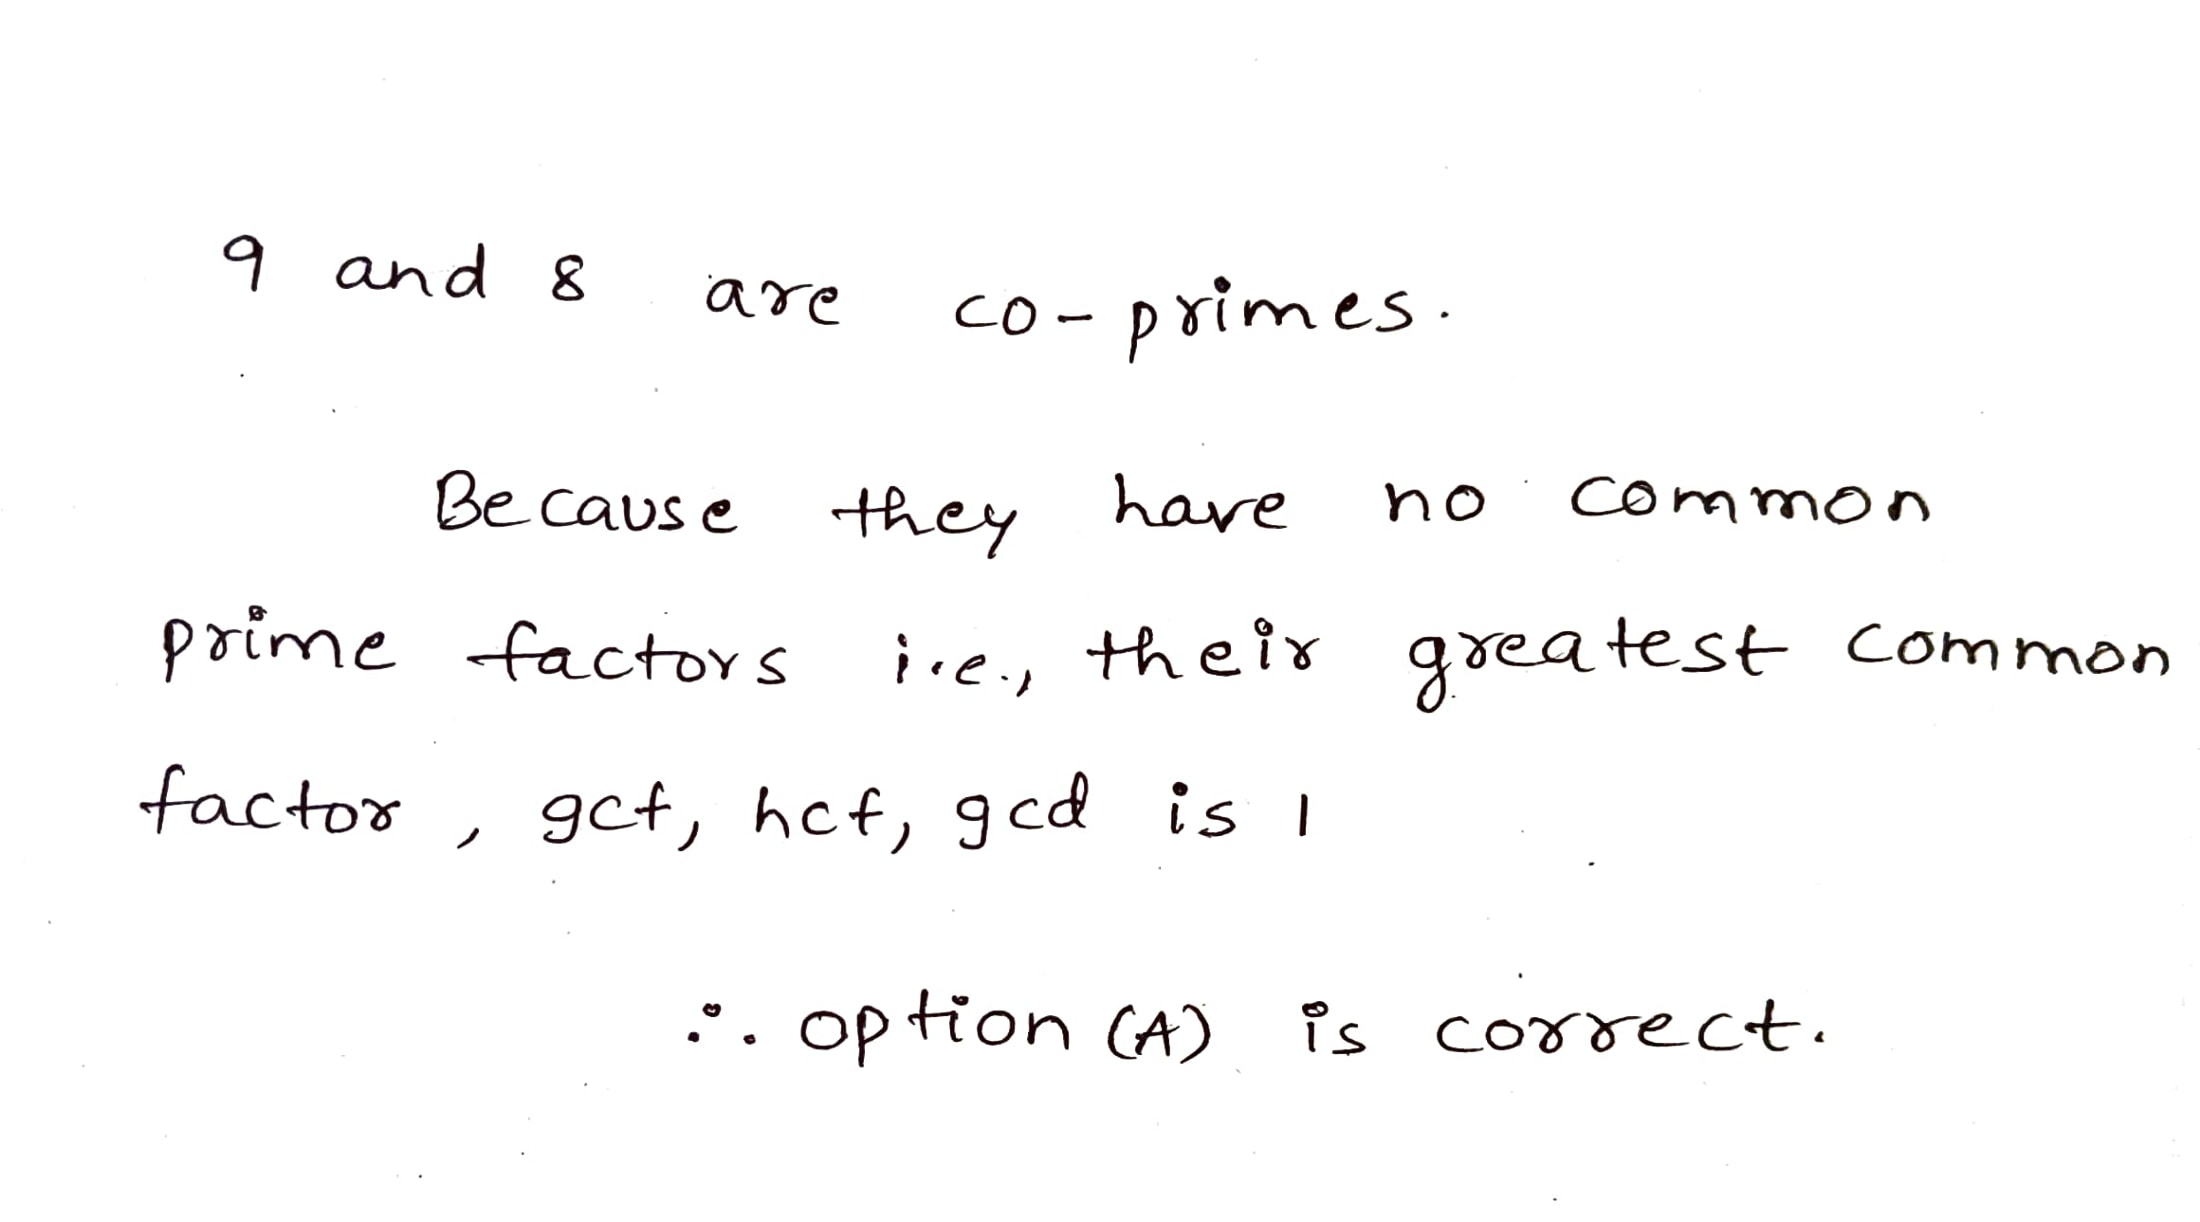 9 and 8 are co-primes.
Because they have no common
prime factors i.e., their greatest common
factor, gcf, hcf, gcd is 1
∴ option (A) is correct.